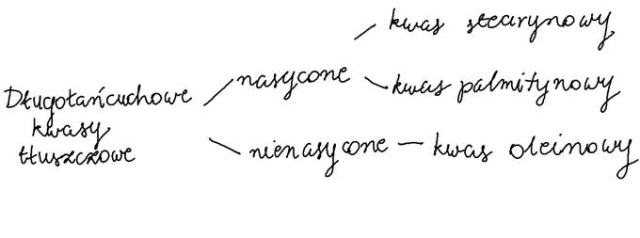 kwas stearynowy
nasycone
kwas palmitynowy
Długołańcuchowe
kwasy
tłuszczowe
nienasycone — kwas oleinowy